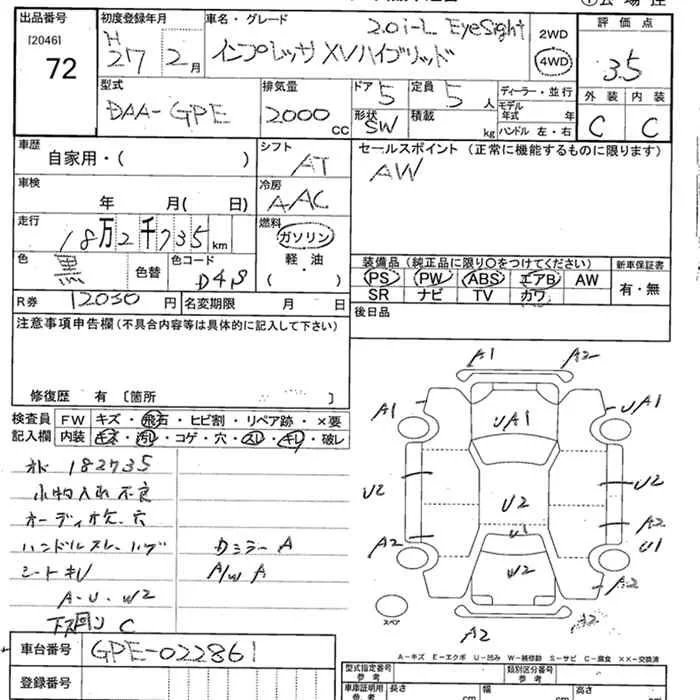 出品番号 初度登録年月 車名・グレード 2.0i-L EyeSight 2WD 評価点
[2046] H
72 27 2月 インプレッサ XVハイブリッド 4WD 3.5
型式 排気量 ドア 定員 ディーラー・並行 外装 内装
DAA-GPE 2000 CC 5 5人 モデル年式 年 C C
形状 SW 積載 kg ハンドル 左・右
車歴 自家用・( ) シフト AT セールスポイント(正常に機能するものに限ります)
AW
車検 年 月( 日) 冷房 AAC
走行 18万2千735km 燃料 ガソリン
軽・油
( )
色 黒 色替 色コード D4S
装備品(純正品に限り○をつけてください) 新車保証書
PS PW ABS エアB AW 有・無
SR ナビ TV カワ
R券 12030円 名変期限 月 日
後日品
注意事項申告欄(不具合内容等は具体的に記入して下さい)
修復歴 有 〔箇所
検査員 FW キズ・飛石・ヒビ割・リペア跡・×要
記入欄 内装 キズ・汚レ・コゲ・穴・スレ・キレ・破レ
A1 A2
A1 UA1 UA1
U2 U2 U2
A2 U1 A2 U1
W2 A2
A2
スペア
182735
小物入れ不良
オーディオ 穴
ハンドルスレ・ハゲ Dミラー A
シートキレ A/W A
A・U・W2
下回り C
A-キズ E-エクボ U-凹み W-補修跡 S-サビ C-腐食 XX-交換済
車台番号 GPE-022861
登録番号
型式指定番号 参考 類別区分番号 参考
車庫証明用 参考 長さ cm 幅 cm 高さ cm